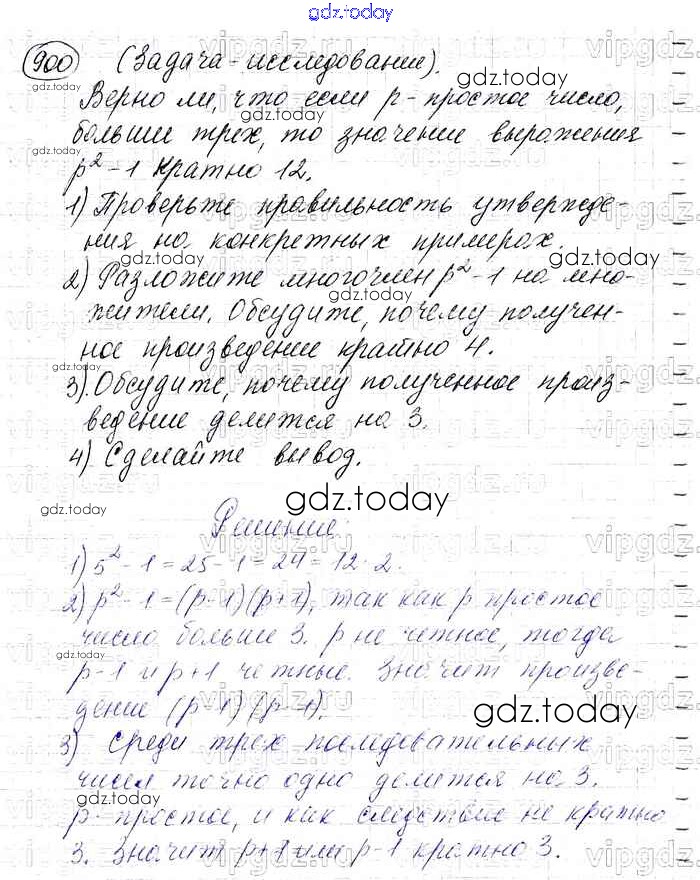 gdz.today
900 (Задача - исследование).
gdz.today
Верно ли, что если p - простое число,
больше трех, то значение выражения
p² - 1 кратно 12.
1) Проверьте правильность утвержде-
ния на конкретных примерах.
2) Разложите многочлен p² - 1 на мно-
жители. Обсудите, почему получен-
ное произведение кратно 4.
3) Обсудите, почему полученное произ-
ведение делится на 3.
4) Сделайте вывод.
gdz.today
Решение:
1) 5² - 1 = 25 - 1 = 24 = 12 · 2.
2) p² - 1 = (p-1)(p+1), так как p простое
число больше 3. p не четное, тогда
p-1 и p+1 четные. Значит произве-
дение (p-1)(p-1).
gdz.today
3) Среди трех последовательных
чисел точно одно делится на 3.
p - простое, и как следствие не кратно
3. Значит p+1 или p-1 кратно 3.
gdz.today